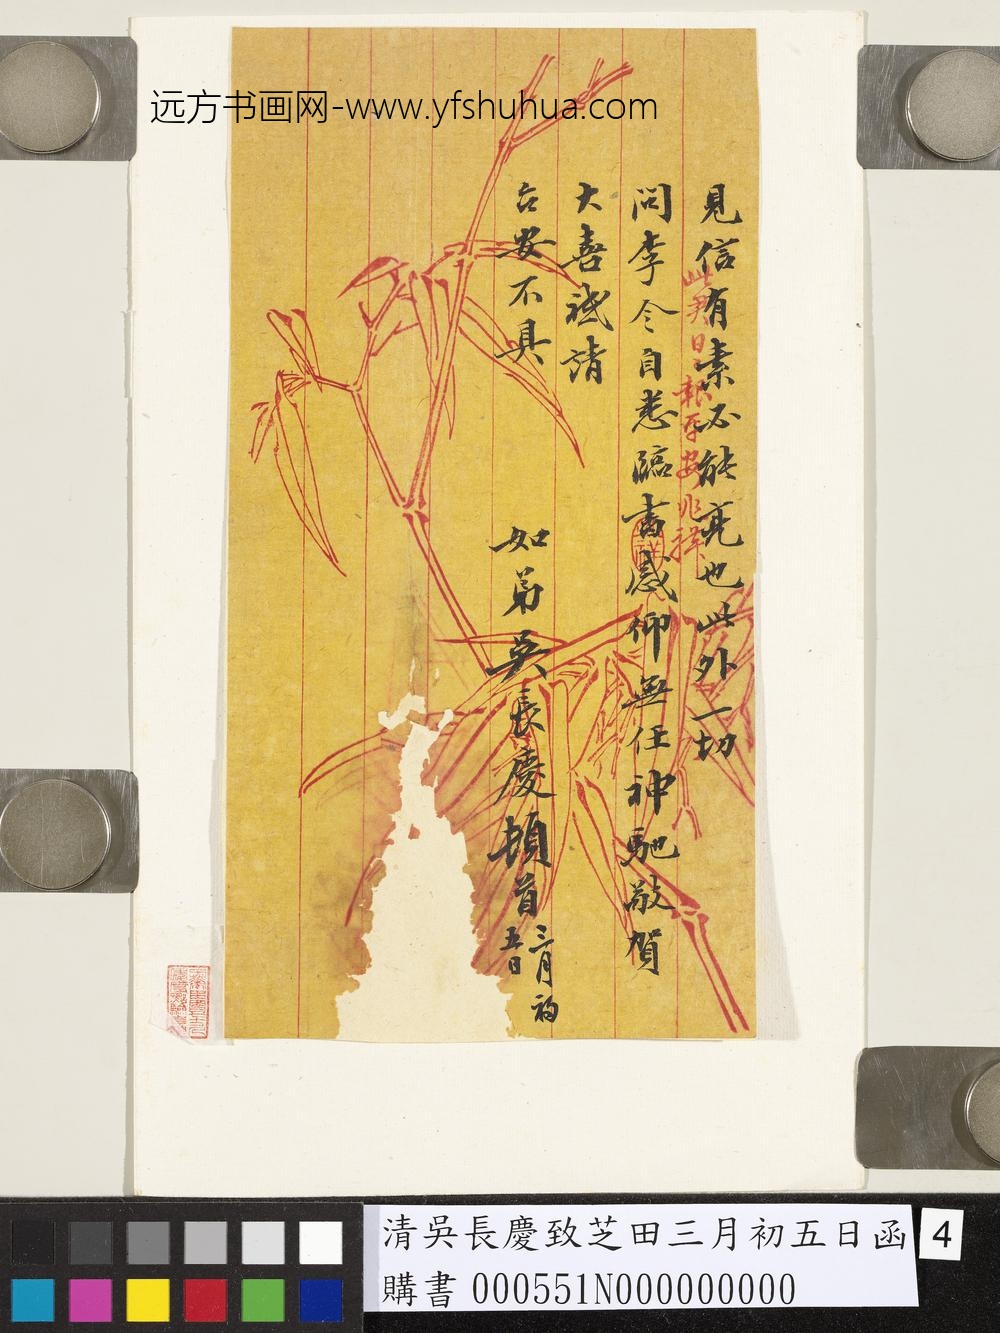 远方书画网-www.yfshuhua.com
見信有素必能亮也此外一切
問李令自悉臨書感仰無任神馳敬賀
大喜祗請
台安不具
如弟吳長慶頓首
三月初
五日
此君日日報平安
清吳長慶致芝田三月初五日函
購書 000551N000000000
4